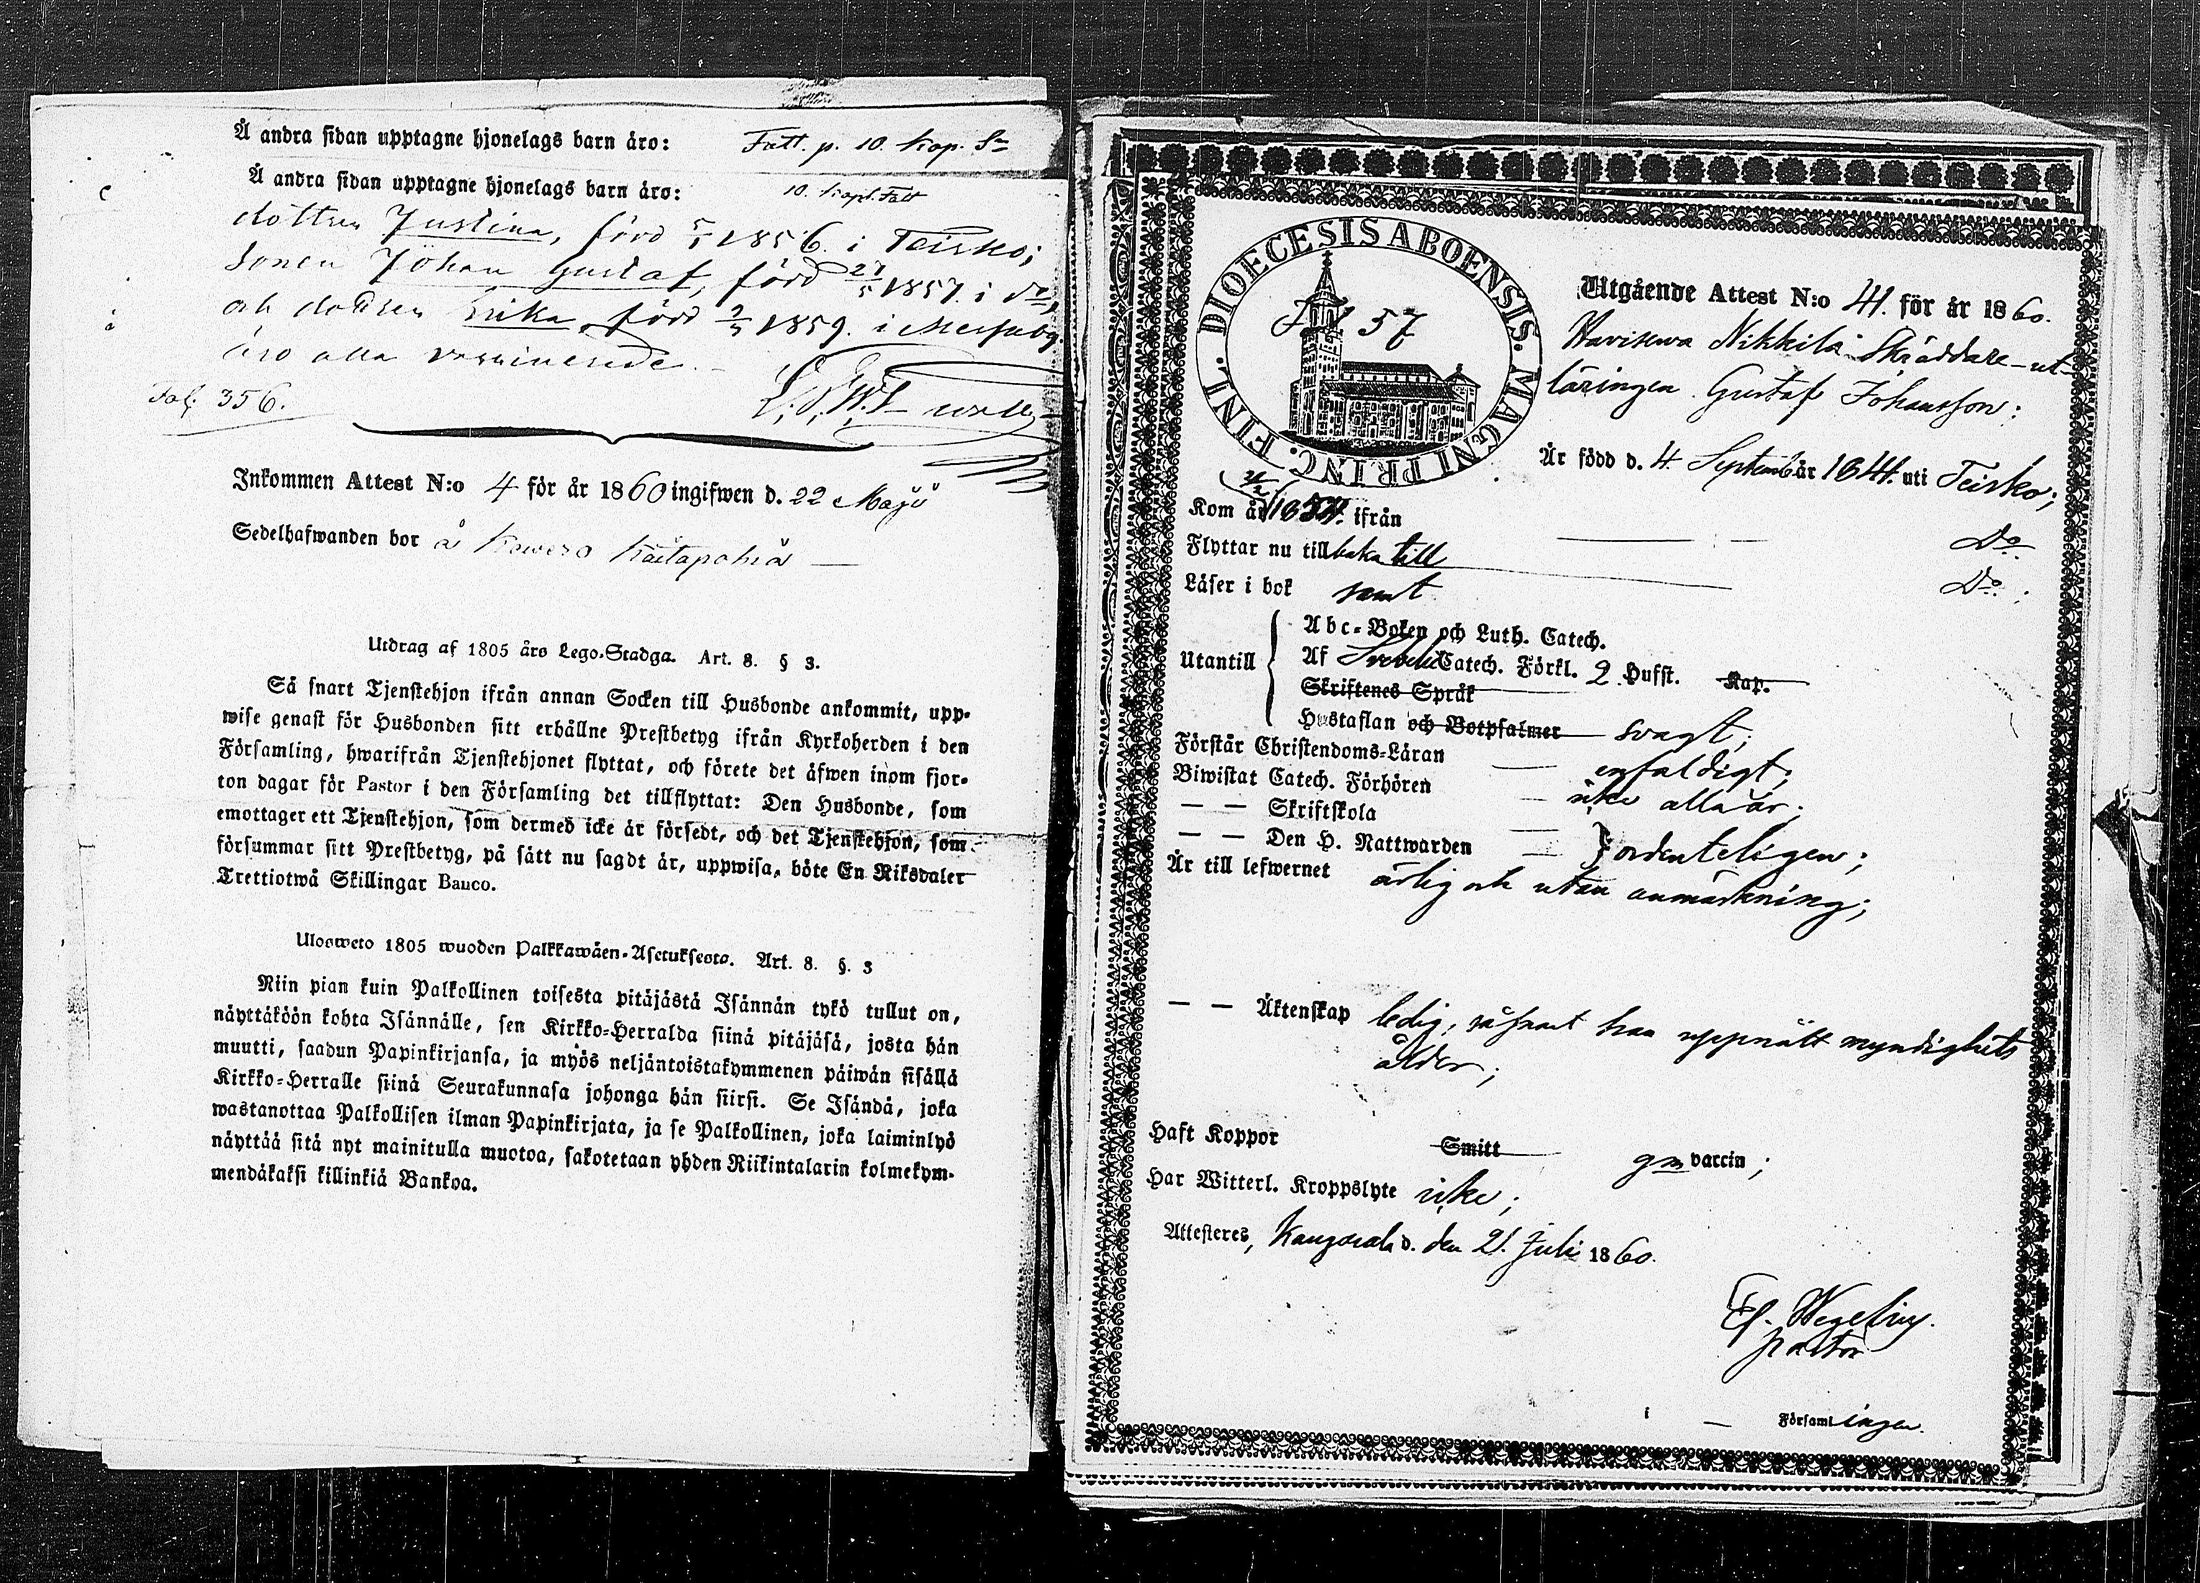 Å andra sidan upptagne hjonelags barn äro: Fatt. p. 10. kop. Sr
Å andra sidan upptagne hjonelags barn äro: 10. kop. Fatt
dottren Justina, född 5/1 1856. i Teisko;
Sonen Johan Gustaf, född 27/5 1857. i do,
och dottren Erika, född 2/5 1859. i Messuby
äro alla vaccinerade.
Fol. 356.
Inkommen Attest N:o 4 för år 1860 ingifwen d. 22 Maji
Sedelhafwanden bor å Kowero Kaitapohia
Utdrag af 1805 års Lego-Stadga. Art. 8. § 3.
Så snart Tjenstehjon ifrån annan Socken till Husbonde ankommit, upp-
wise genast för Husbonden sitt erhållne Prestbetyg ifrån Kyrkoherden i den
Församling, hwarifrån Tjenstehjonet flyttat, och förete det äfwen inom fjor-
ton dagar för Pastor i den Församling det tillflyttat: Den Husbonde, som
emottager ett Tjenstehjon, som dermed icke är försedt, och det Tjenstehjon, som
försummar sitt Prestbetyg, på sätt nu sagdt är, uppwisa, böte En Riksdaler
Trettiotwå Skillingar Banco.
Ulosweto 1805 wuoden Palkkawäen-Asetuksesta. Art. 8. §. 3
Niin pian kuin Palkollinen toisesta pitäjästä Isännän tykö tullut on,
näyttäköön kohta Isännälle, sen Kirkko-Herralda siinä pitäjäsä, josta hän
muutti, saadun Papinkirjansa, ja myös neljäntoistakymmenen päiwän sisällä
Kirkko-Herralle siinä Seurakunnasa johonga hän siirsi. Se Isändä, joka
wastanottaa Palkollisen ilman Papinkirjata, ja se Palkollinen, joka laiminlyö
näyttää sitä nyt mainitulla muotoa, sakotetaan yhden Riikintalarin kolmekym-
mendäkaksi killinkiä Bankoa.
DIOECESIS ABOENSIS. MAGNI PRINC. FINL.
57
Utgående Attest N:o 41. för år 1860.
Havisewa Nikkilä Skräddare-ut-
läringen Gustaf Johansson;
Är född d. 4. September år 1841. uti Teisko;
Kom år 1854. ifrån Do
Flyttar nu tillbaka till Do.;
Läser i bok samt
Utantill
Abc-Boken och Luth. Catech.
Af Svebelii Catech. Förkl. 2 Hufst. Kap.
Skriftenes Språk
Hustaflan och Botpsalmer svagt;
Förstår Christendoms-Läran enfaldigt;
Biwistat Catech. Förhören icke alla år;
— — Skriftskola
— — Den H. Nattwarden ordenteligen;
Är till lefwernet ärlig och utan anmärkning;
— — Äktenskap ledig, såsnart han uppnått myndighets
ålder;
Haft Koppor Smitt gm vaccin;
Har Witterl. Kroppslyte icke;
Attesteres, Kangasala d. den 21. Juli 1860.
Ef. Wegelius.
pastor
i — Församlingen.